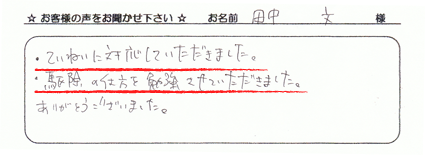 ☆ お客様の声をお聞かせ下さい ☆ お名前 田中 文 様
・ていねいに対応していただきました。
・駆除の仕方を勉強させていただきました。
ありがとうございました。